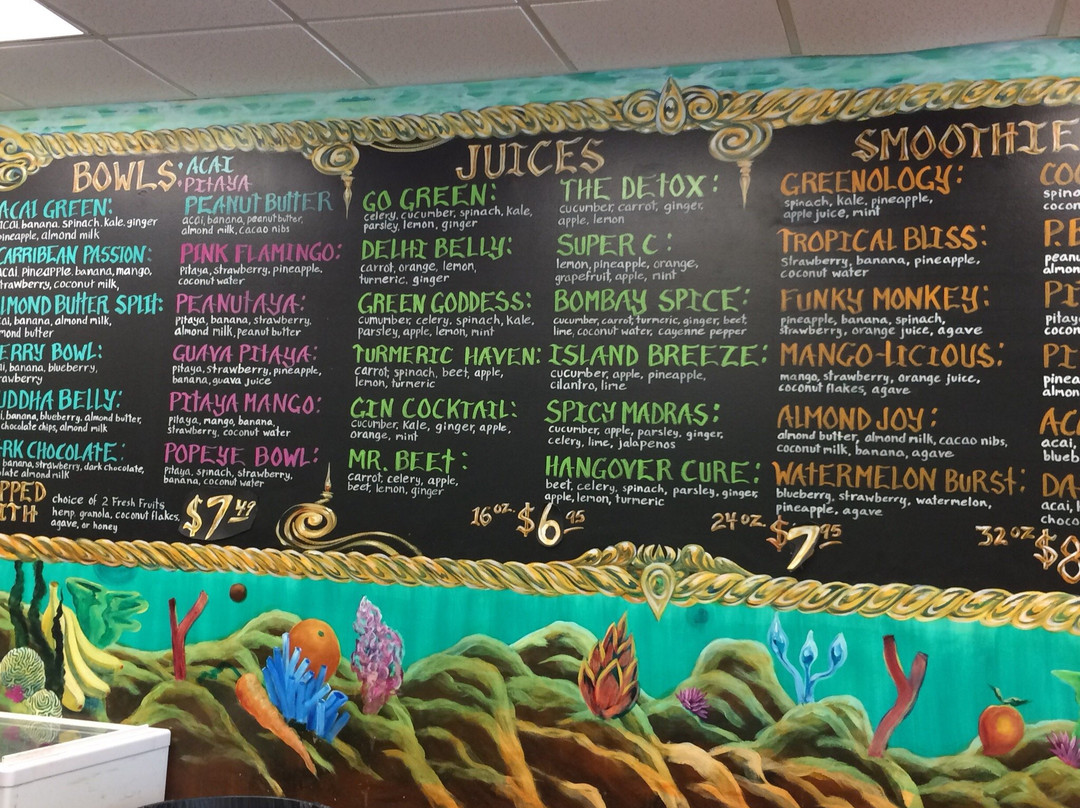 BOWLS:
ACAI
PITAYA
ACAI GREEN:
acai, banana, spinach, kale, ginger
pineapple, almond milk
CARRIBEAN PASSION:
acai, pineapple, banana, mango,
strawberry, coconut milk,
ALMOND BUTTER SPLIT:
acai, banana, almond milk,
almond butter
BERRY BOWL:
banana, blueberry,
strawberry
BUDDHA BELLY:
banana, blueberry, almond butter,
chocolate chips, almond milk
DARK CHOCOLATE:
banana, strawberry, dark chocolate,
almond milk
choice of 2 Fresh Fruits
hemp, granola, coconut flakes,
agave, or honey
PEANUT BUTTER
acai, banana, peanut butter,
almond milk, cacao nibs
PINK FLAMINGO:
Pitaya, strawberry, pineapple,
coconut water
PEANUTAYA:
Pitaya, banana, strawberry,
almond milk, peanut butter
GUAVA PITAYA:
pitaya, strawberry, pineapple,
banana, guava juice
PITAYA MANGO:
pitaya, mango, banana,
strawberry, coconut water
POPEYE BOWL:
Pitaya, spinach, strawberry,
banana, coconut water
$7.49
JUICES
GO GREEN:
celery, cucumber, spinach, kale,
parsley, lemon, ginger
DELHI BELLY:
carrot, orange, lemon,
turmeric, ginger
GREEN GODDESS:
cumumber, celery, spinach, kale,
parsley, apple, lemon, mint
TURMERIC HAVEN:
carrot, spinach, beet, apple,
lemon, turmeric
GIN COCKTAIL:
cucumber, kale, ginger, apple,
orange, mint
MR. BEET:
carrot, celery, apple,
beet, lemon, ginger
THE DETOX:
cucumber, carrot, ginger,
apple, lemon
SUPER C:
lemon, pineapple, orange,
grapefruit, apple, mint
BOMBAY SPICE:
cucumber, carrot, turmeric, ginger, beet,
lime, coconut water, cayenne pepper
ISLAND BREEZE:
cucumber, apple, pineapple,
cilantro, lime
SPICY MADRAS:
cucumber, apple, parsley, ginger,
celery, lime, jalapenos
HANGOVER CURE:
beet, celery, spinach, parsley, ginger,
apple, lemon, turmeric
16 oz. $6.95
SMOOTHIE
GREENOLOGY:
spinach, kale, pineapple,
apple juice, mint
TROPICAL BLISS:
Strawberry, banana, pineapple,
coconut water
FUNKY MONKEY:
pineapple, banana, spinach,
strawberry, orange juice, agave
MANGO-LICIOUS:
mango, strawberry, orange juice,
coconut flakes, agave
ALMOND JOY:
almond butter, almond milk, cacao nibs,
coconut milk, banana, agave
WATERMELON BURST:
blueberry, strawberry, watermelon,
pineapple, agave
24 oz. $7.95
32 oz. $8